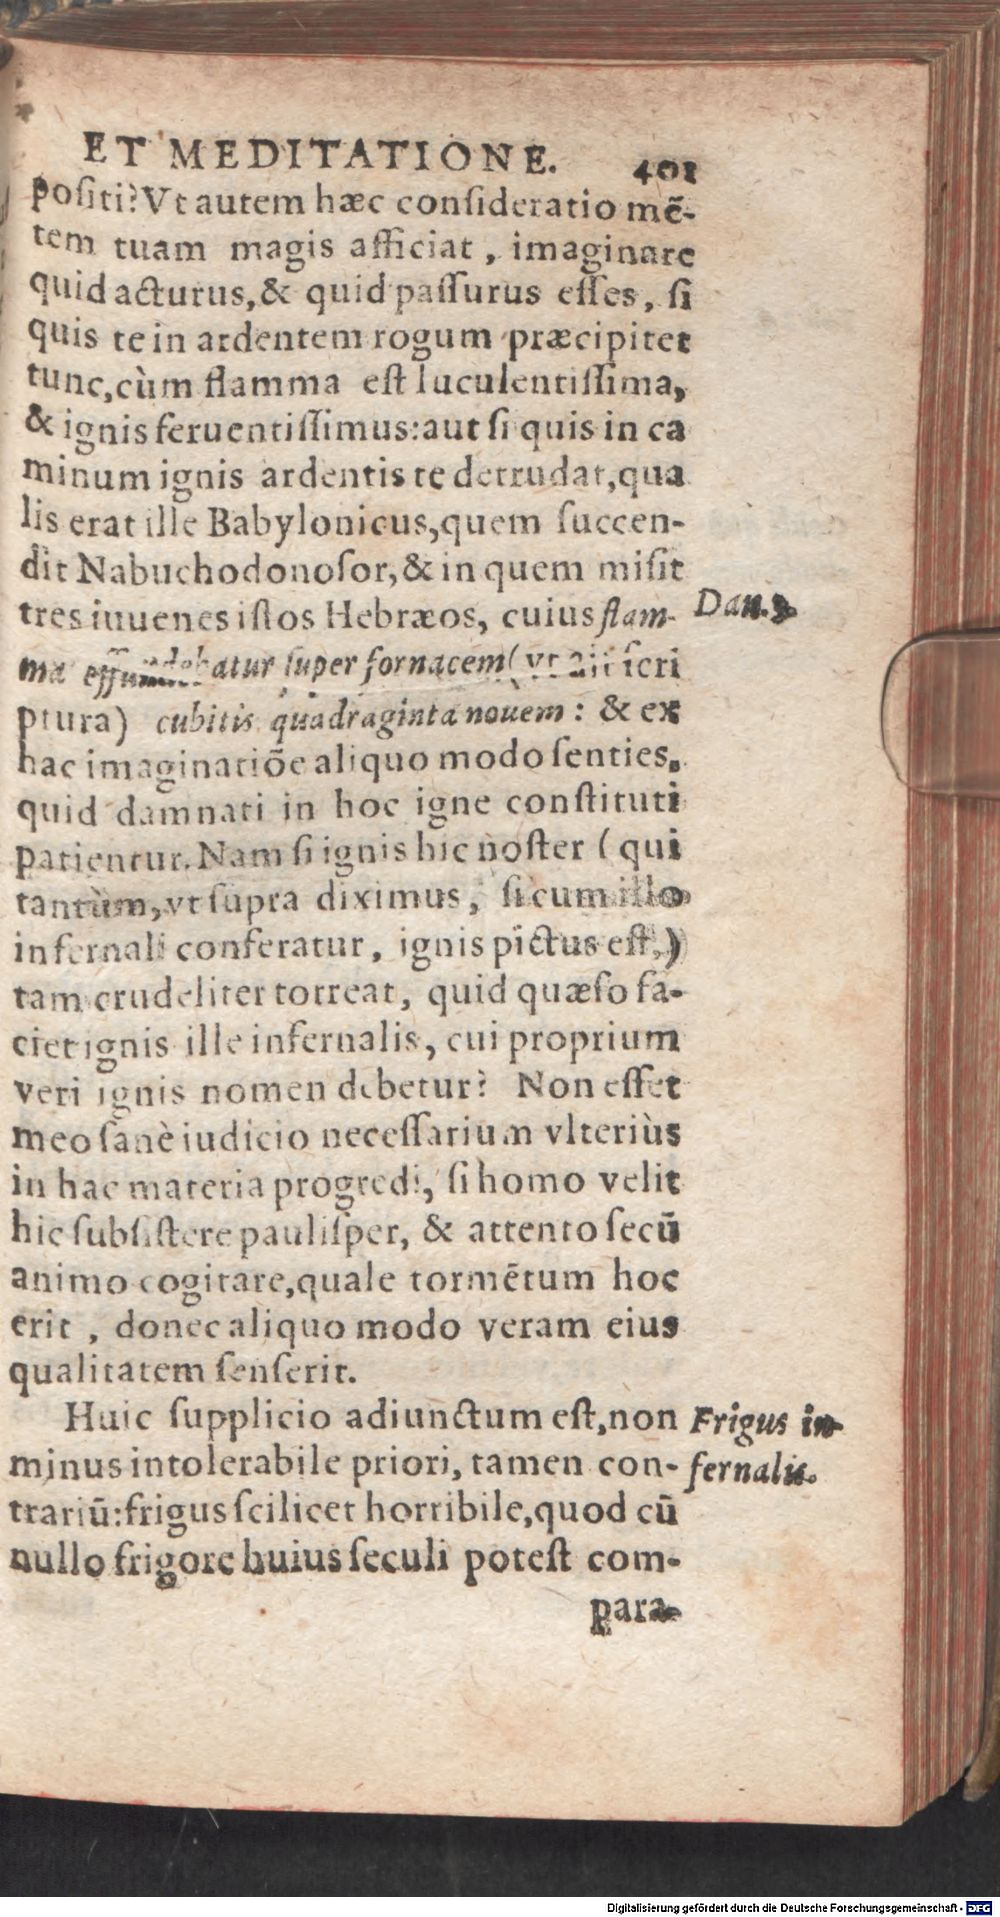 ET MEDITATIONE. 401
positi? Vt autem hæc conſideratio mẽ-
tem tuam magis afficiat, imaginare
quid acturus, & quid paſſurus eſſes, ſi
quis te in ardentem rogum præcipitet
tunc, cùm flamma eſt luculentiſſima,
& ignis feruentiſſimus: aut ſi quis in ca
minum ignis ardentis te detrudat, qua
lis erat ille Babylonicus, quem ſuccen-
dit Nabuchodonoſor, & in quem miſit
tres iuuenes iſtos Hebræos, cuius flam-
Dan. 3.
ma effundebatur ſuper fornacem (vt ait ſcri
ptura) cubitis quadraginta nouem: & ex
hac imaginatiõe aliquo modo ſenties,
quid damnati in hoc igne conſtituti
patientur. Nam ſi ignis hic noſter (qui
tantùm, vt ſupra diximus, ſi cum illo
infernali conferatur, ignis pictus eſt,)
tam crudeliter torreat, quid quæſo fa-
ciet ignis ille infernalis, cui proprium
veri ignis nomen debetur? Non eſſet
meo ſanè iudicio neceſſarium vlteriùs
in hac materia progredi, ſi homo velit
hic ſubſiſtere pauliſper, & attento ſecũ
animo cogitare, quale tormẽtum hoc
erit, donec aliquo modo veram eius
qualitatem ſenſerit.
Huic ſupplicio adiunctum eſt, non
Frigus in-
minus intolerabile priori, tamen con-
fernalis.
trariũ: frigus ſcilicet horribile, quod cũ
nullo frigore huius ſeculi poteſt com-
para-
Digitalisierung gefördert durch die Deutsche Forschungsgemeinschaft - DFG